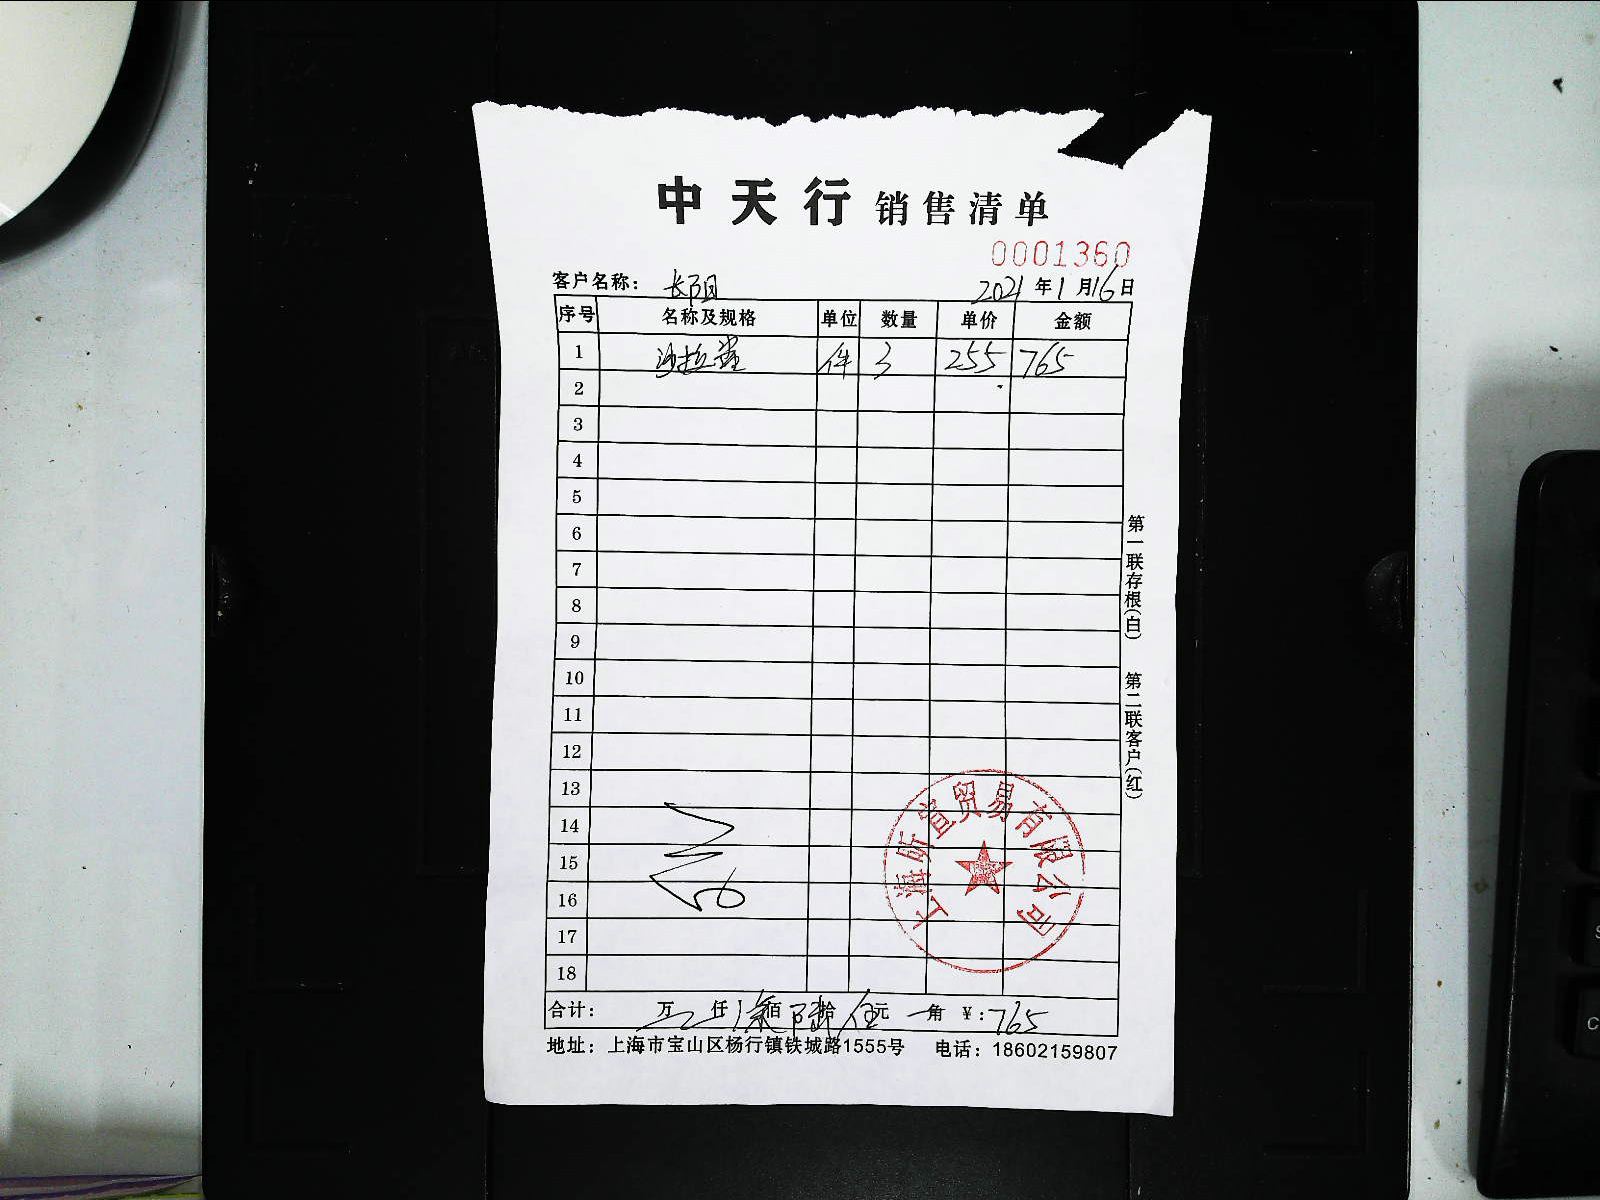 中天行 销售清单
0001360
客户名称： 长阳 2021年1月16日
序号 名称及规格 单位 数量 单价 金额
1 沙拉酱 件 3 255 765
2
3
4
5
6
7
8
9
10
11
12
13
14
15
16
17
18
合计： 万 仟 佰 陆拾 伍元 角 ￥：765
地址：上海市宝山区杨行镇铁城路1555号 电话：18602159807
第一联存根(白) 第二联客户(红)
上海昕宣贸易有限公司